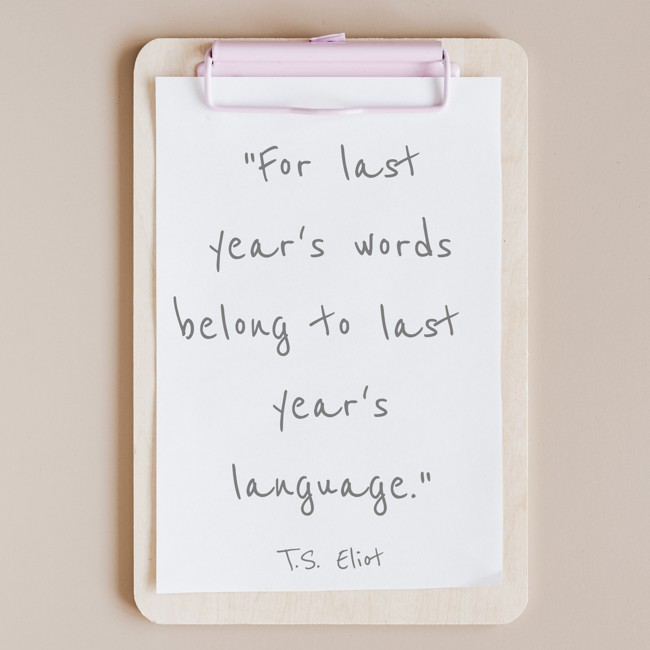 "For last
year's words
belong to last
year's
language."
T.S. Eliot